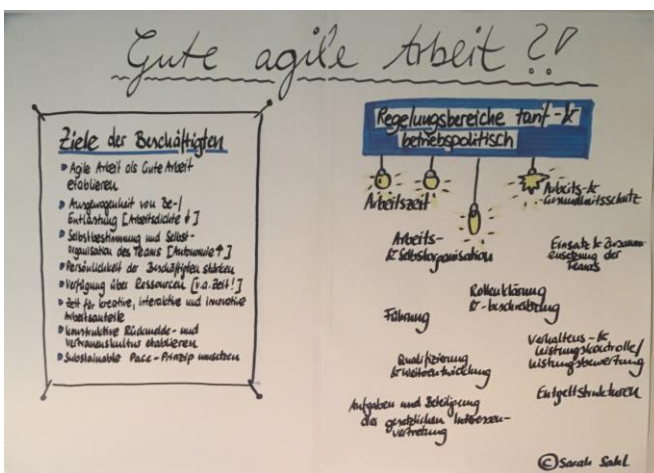 Gute agile Arbeit ?!
Ziele der Beschäftigten
Agile Arbeit als Gute Arbeit
etablieren
Ausgewogenheit von Be-/
Entlastung [Arbeitsdichte ↓]
Selbstbestimmung und Selbst-
organisation des Teams [Autonomie ↑]
Persönlichkeit der Beschäftigten stärken
Verfügung über Ressourcen [v.a. Zeit!]
Zeit für kreative, interaktive und innovative
Arbeitsanteile
konstruktive Rückmelde- und
Vertrauenskultur etablieren
Substainable Pace-Prinzip umsetzen
Regelungsbereiche tarif- &
betriebspolitisch
Arbeitszeit
Arbeits- &
Gesundheitsschutz
Arbeits-
& Selbstorganisation
Einsatz & Zusamm-
ensetzung der
Teams
Rollenklärung
& -beschreibung
Führung
Verhaltens- &
Leistungskontrolle/
Leistungsbewertung
Qualifizierung
& Weiterentwicklung
Entgeltstrukturen
Aufgaben und Beteiligung
der gesetzlichen Interessen-
vertretung
© Sarah